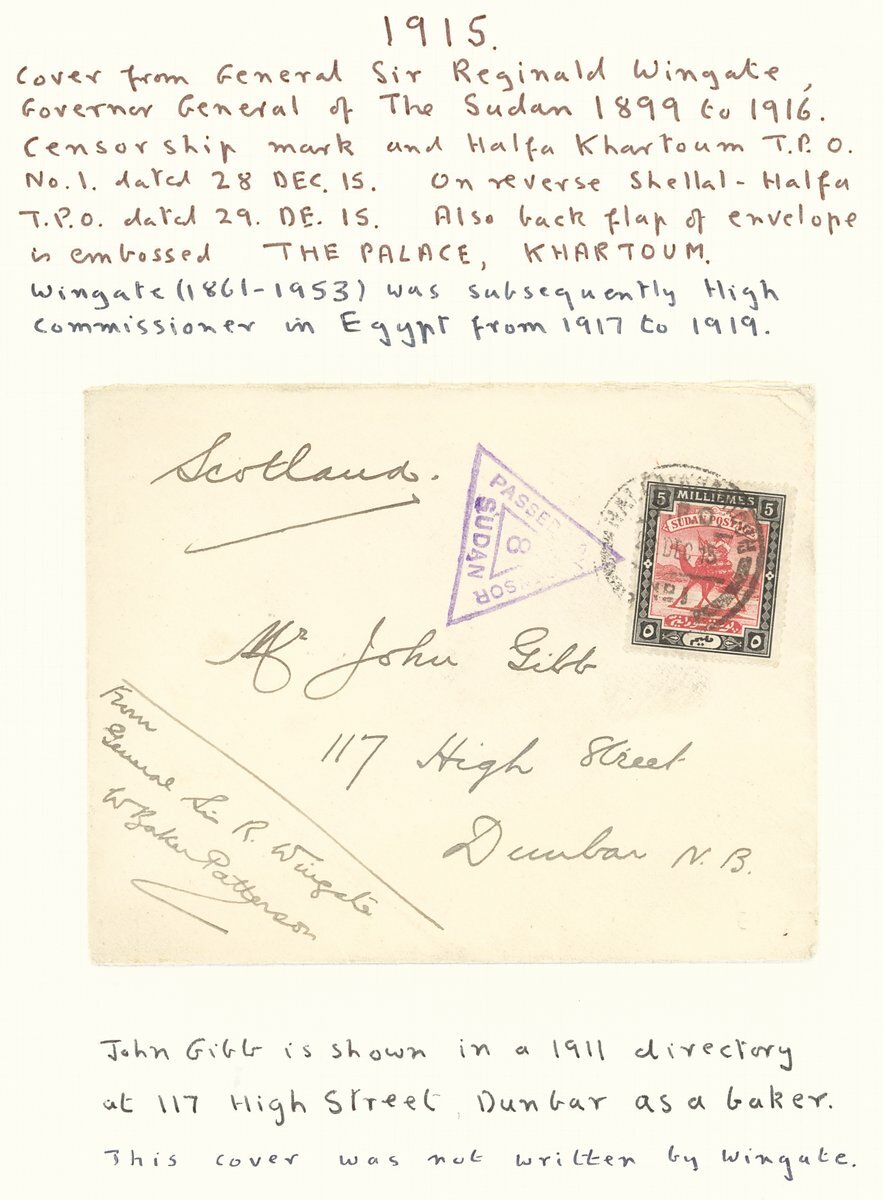 1915.
Cover from General Sir Reginald Wingate,
Governor General of The Sudan 1899 to 1916.
Censorship mark and Halfa Khartoum T.P.O.
No.1. dated 28 DEC. 15. On reverse Shellal-Halfa
T.P.O. dated 29. DE. 15. Also back flap of envelope
is embossed THE PALACE, KHARTOUM.
Wingate (1861-1953) was subsequently High
Commissioner in Egypt from 1917 to 1919.
Scotland.
PASSED
SUDAN
8
5 MILLIEMES 5
SUDAN POSTAGE
DEC 15
٥ ٥
Mr John Gibb
117 High Street
Dunbar N.B.
From
General Sir R. Wingate
W Baker Patterson
John Gibb is shown in a 1911 directory
at 117 High Street, Dunbar as a baker.
This cover was not written by Wingate.